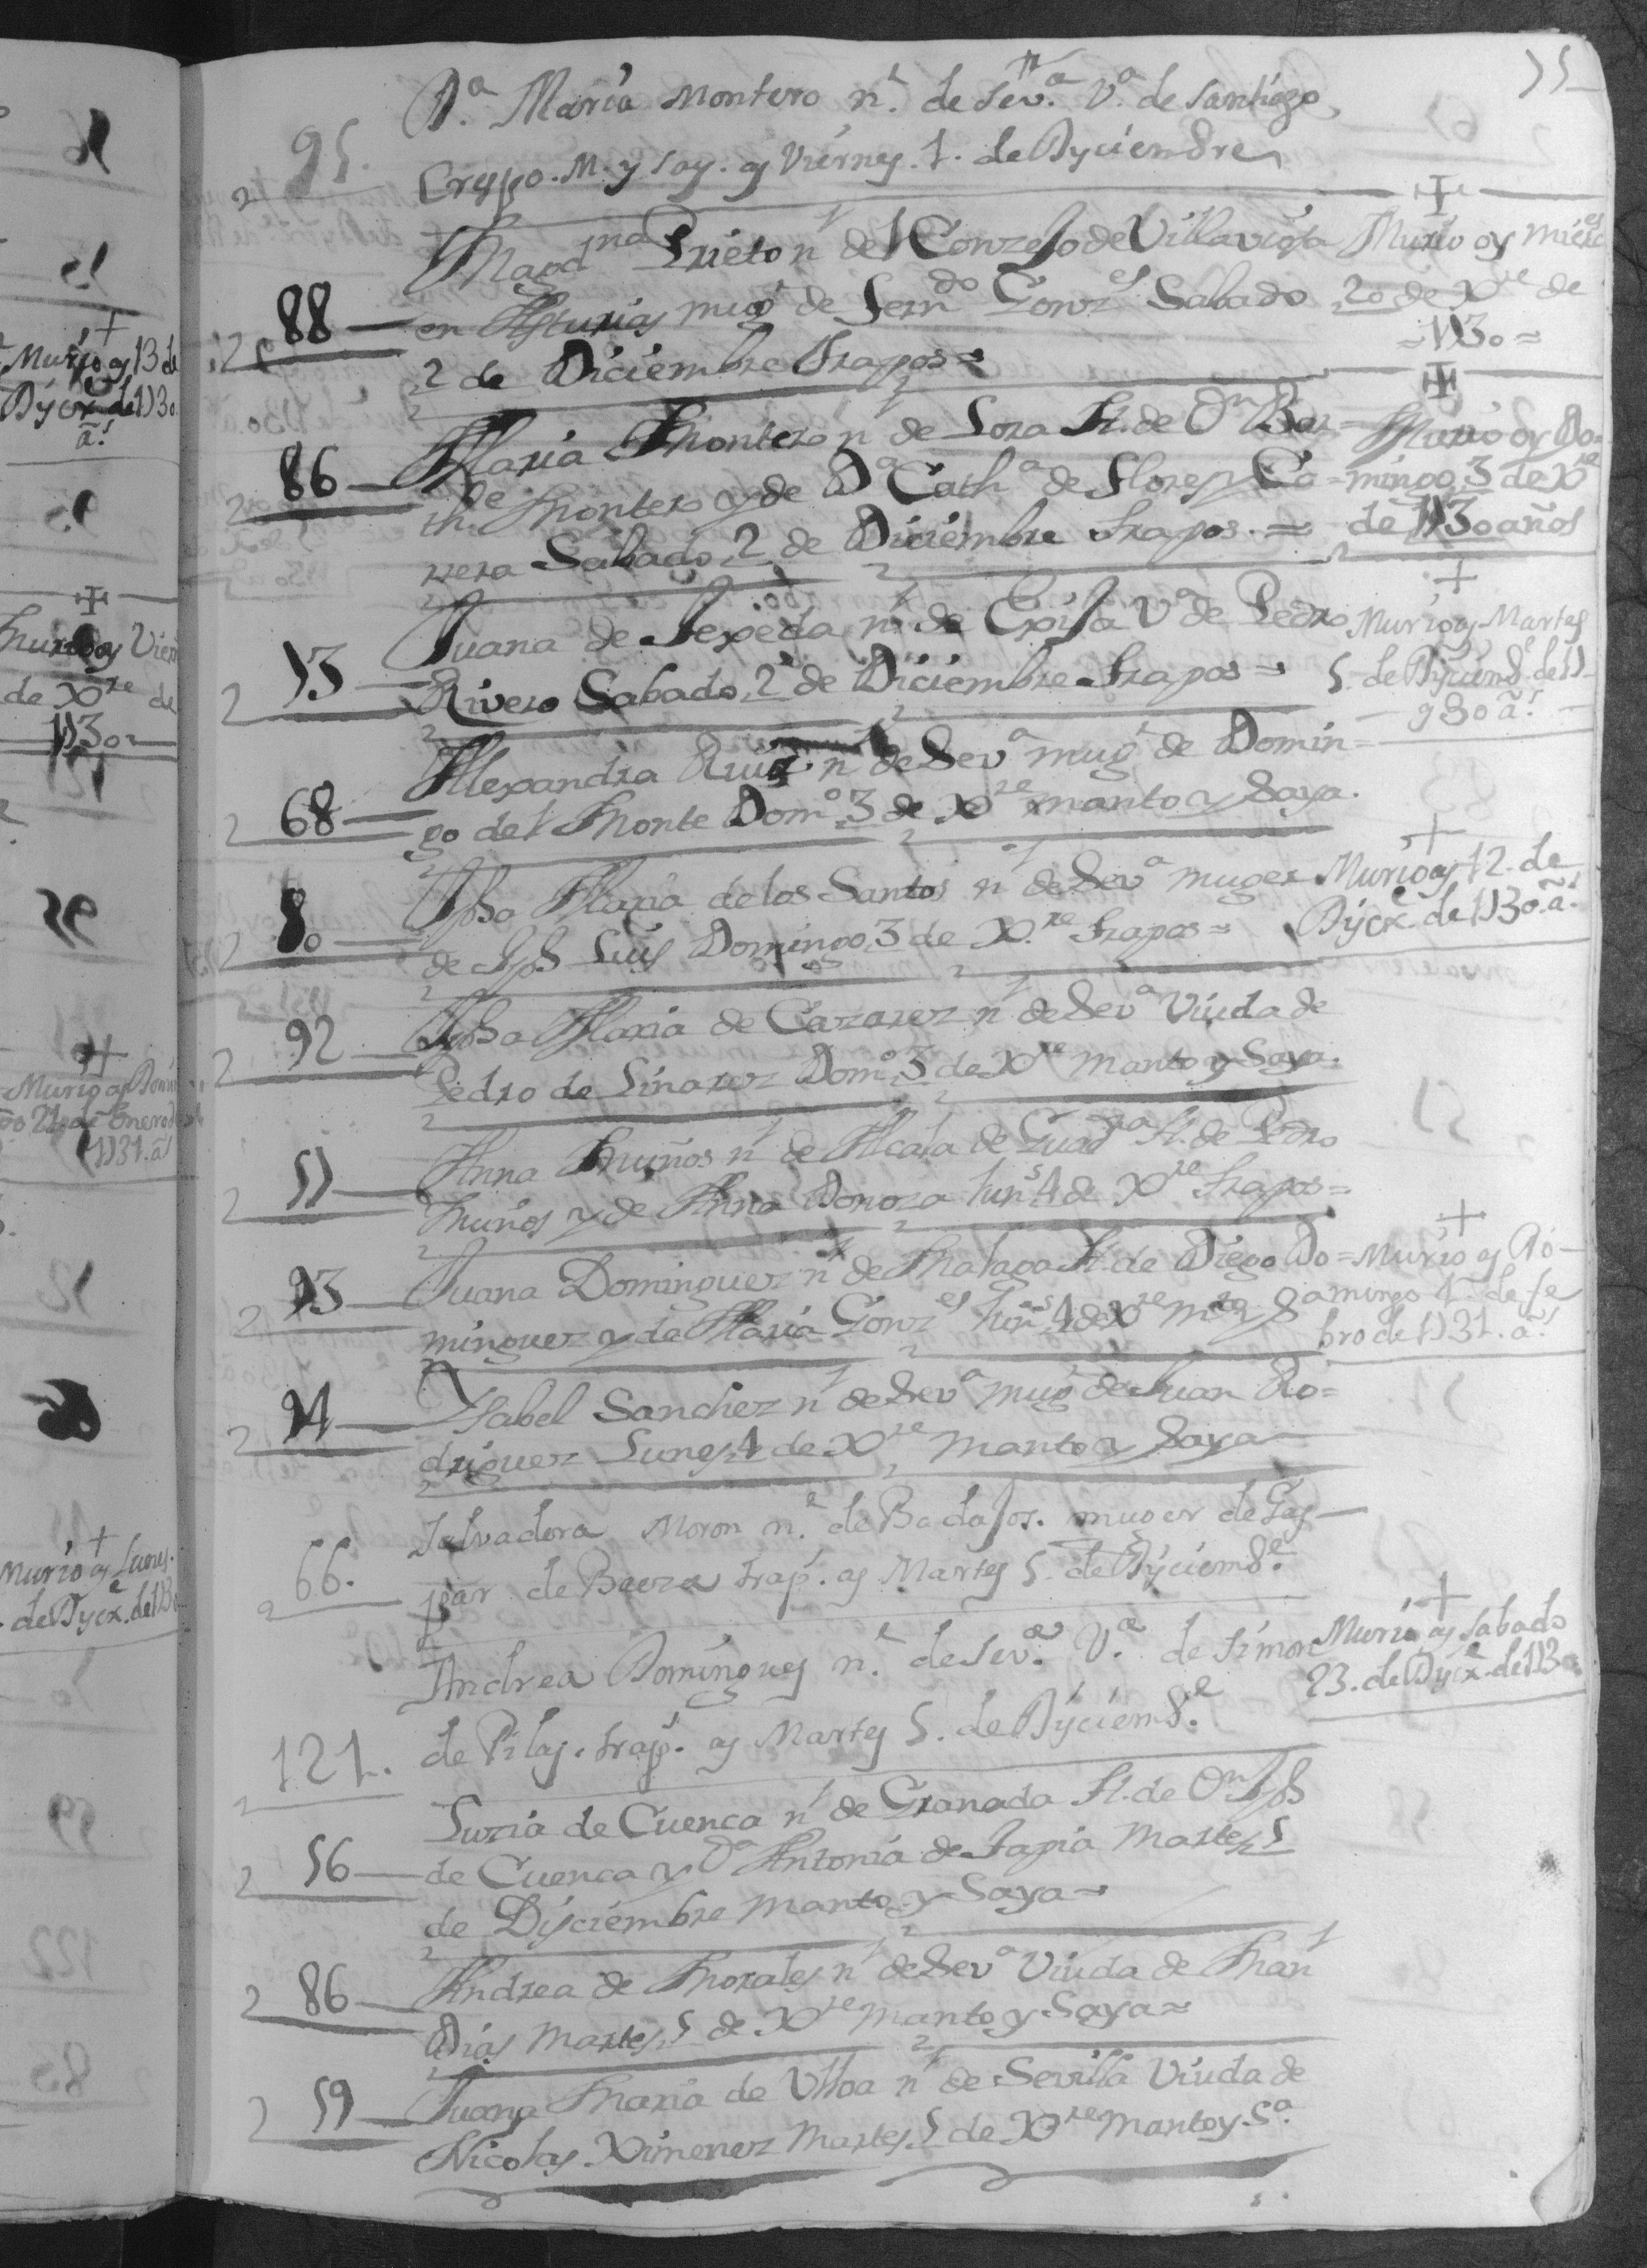 75
95. Dª. Maria Montero nl. de Sevª. Vª. de Santiago
Crespo. M. y Say. oy Viernes. 1. de Dyciembre
Magdna Prieto nl de l Conzejo de Villaviciosa
88 en Asturias mugr de Ferndo Gonzes Sabado
2 de Diciembre trapos =
Murio oy Miercs
20 de Xre de
= 1730 =
Maria Montero nl de Lora H. de Dn Bar=
86 thme Montero y de Dª Cathª de Flores y Ca=
rrera Sabado 2 de Diciembre trapos. =
Murio oy Do=
mingo 3 de Xre
de 1730 años
Juana de Zepeda nl de Ezija Vª de Pedro
73 Rivero Sabado 2 de Diciembre trapos =
Murio oy Martes
5. de Dyciembe de 17
y 30 añ
Alexandra Ruiz nl de Sevª mugr de Domin=
68 go del Monte Domº 3 de Xre manto y Saya.
Jpha Maria de los Santos nl de Sevª muger
80 de Jph Luis Domingo 3 de Xre trapos =
Murio oy 12. de
Dyce. de 1730. añ
Jpha Maria de Cazarez nl de Sevª Viuda de
92 Pedro de Linarez Domº 3 de Xre Manto y Saya.
Anna Muños nl de Alcala de Guadra H. de Pedro
57 Muños y de Anna Donoza luns 4 de Xre trapos =
Juana Dominguez nl de Malaga H. de Diego Do=
93 minguez y de Maria Gonzes luns 4 de Xre Mto y S
Murio oy Do-
mingo 4 de fe
bro de 1731. añ
Ysabel Sanchez nl de Sevª mugr de Juan Ro=
94 driguez Lunes 4 de Xre manto y Saya
Salvadora Moron nl. de Badajos. muger de Gas-
66. par de Baeza trap. oy Martes 5. de Dyciembe.
Andrea Domingues nl. de Sevª. Vª. de Simon
121. de Pilas. trap. oy Martes 5. de Dyciembe.
Murio oy Sabado
23. de Dyce. de 1730
Luzia de Cuenca nl de Granada H. de Dn Jph
56 de Cuenca y Dª Antonia de Tapia Martes 5
de Dyciembre Manto y Saya =
Andrea de Morales nl de Sevª Viuda de Fran
86 Dias Martes 5 de Xre Manto y Saya =
Juana Maria de Ulloa nl de Sevilla Viuda de
59 Nicolas Ximenez Martes 5 de Xre Manto y Sª.